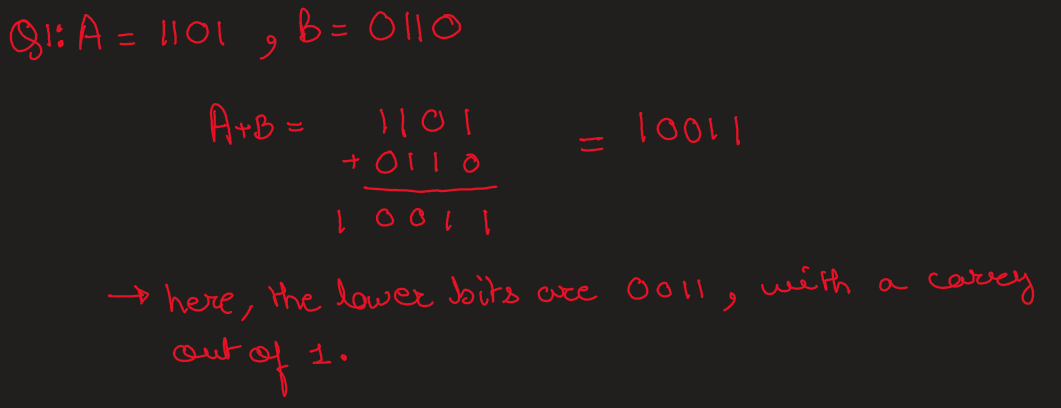 Q1: A = 1101 , B = 0110
A+B = 1101 = 10011
+ 0110
1 0011
→ here, the lower bits are 0011, with a carry
out of 1.